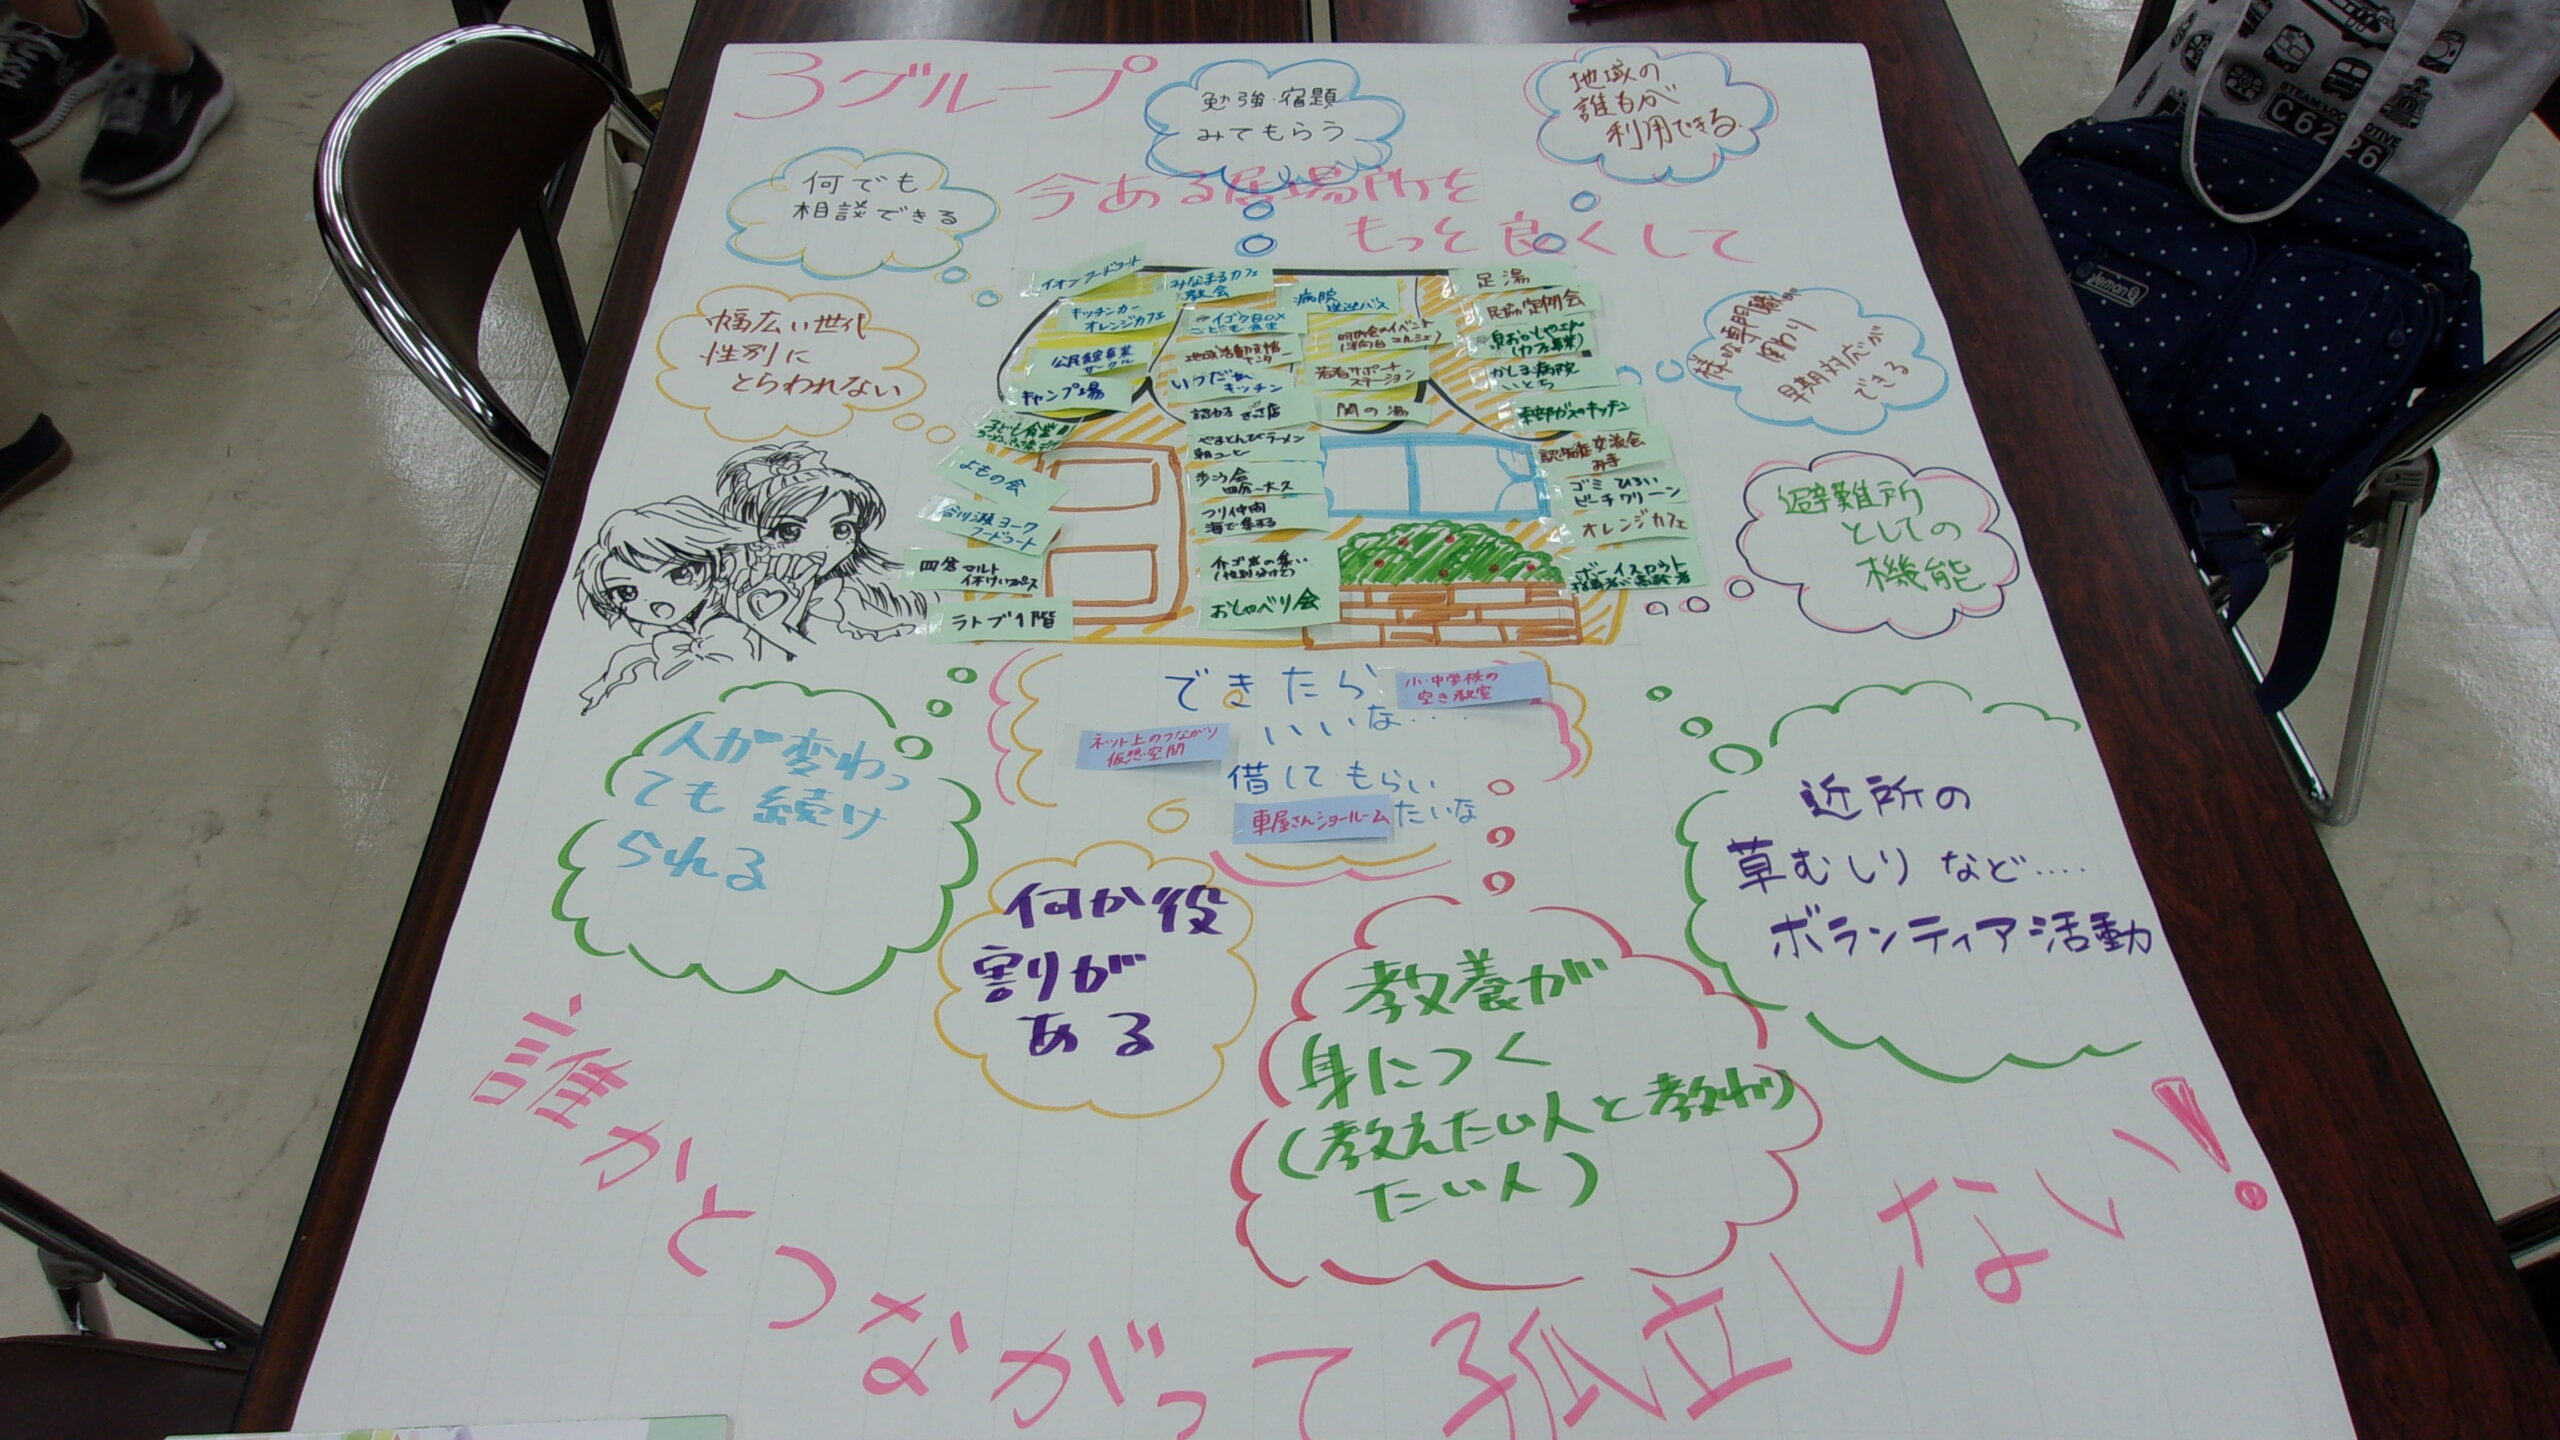 3グループ
勉強・宿題
みてもらう
地域の
誰もが
利用できる
何でも
相談できる
今ある居場所を
もっと良くして
幅広い世代
性別に
とらわれない
様々な専門職が
関わり
早期対応が
できる
避難所
としての
機能
イオンフードコート
キッチンカー
オレンジカフェ
公民館事業
サークル
キャンプ場
子ども食堂
よもの会
谷川瀬ヨーク
フードコート
四倉マルト
休けいスペース
ラトブ1階
みなまるカフェ
教会
イゴクBOX
こども食堂
地域活動支援
センター
いつだれ
キッチン
認カフェ きっさ店
やまとんびラーメン
朝コーヒー
歩こう会
四倉-大久
つり仲間
海で集まる
介ゴ者の集い
(性別分けて)
おしゃべり会
病院
送迎バス
町内会のイベント
若者サポート
ステーション
関の湯
足湯
民協定例会
泉おかしゃえん
(カフェ事業)
かしま病院
いとち
東部ガスのキッチン
認知症交流会
み手
ゴミひろい
ビーチクリーン
オレンジカフェ
ボーイスカウト
指導者が高齢者
できたら
いいな・・・・
小・中学校の
空き教室
ネット上のつながり
仮想空間
借してもらい
たいな
車屋さんショールーム
人が変わっ
ても続け
られる
近所の
草むしりなど‥‥
ボランティア活動
何か役
割りが
ある
教養が
身につく
(教えたい人と教わり
たい人)
誰かとつながって孤立しない!
STEAM LOCOMOTIVE
C6226